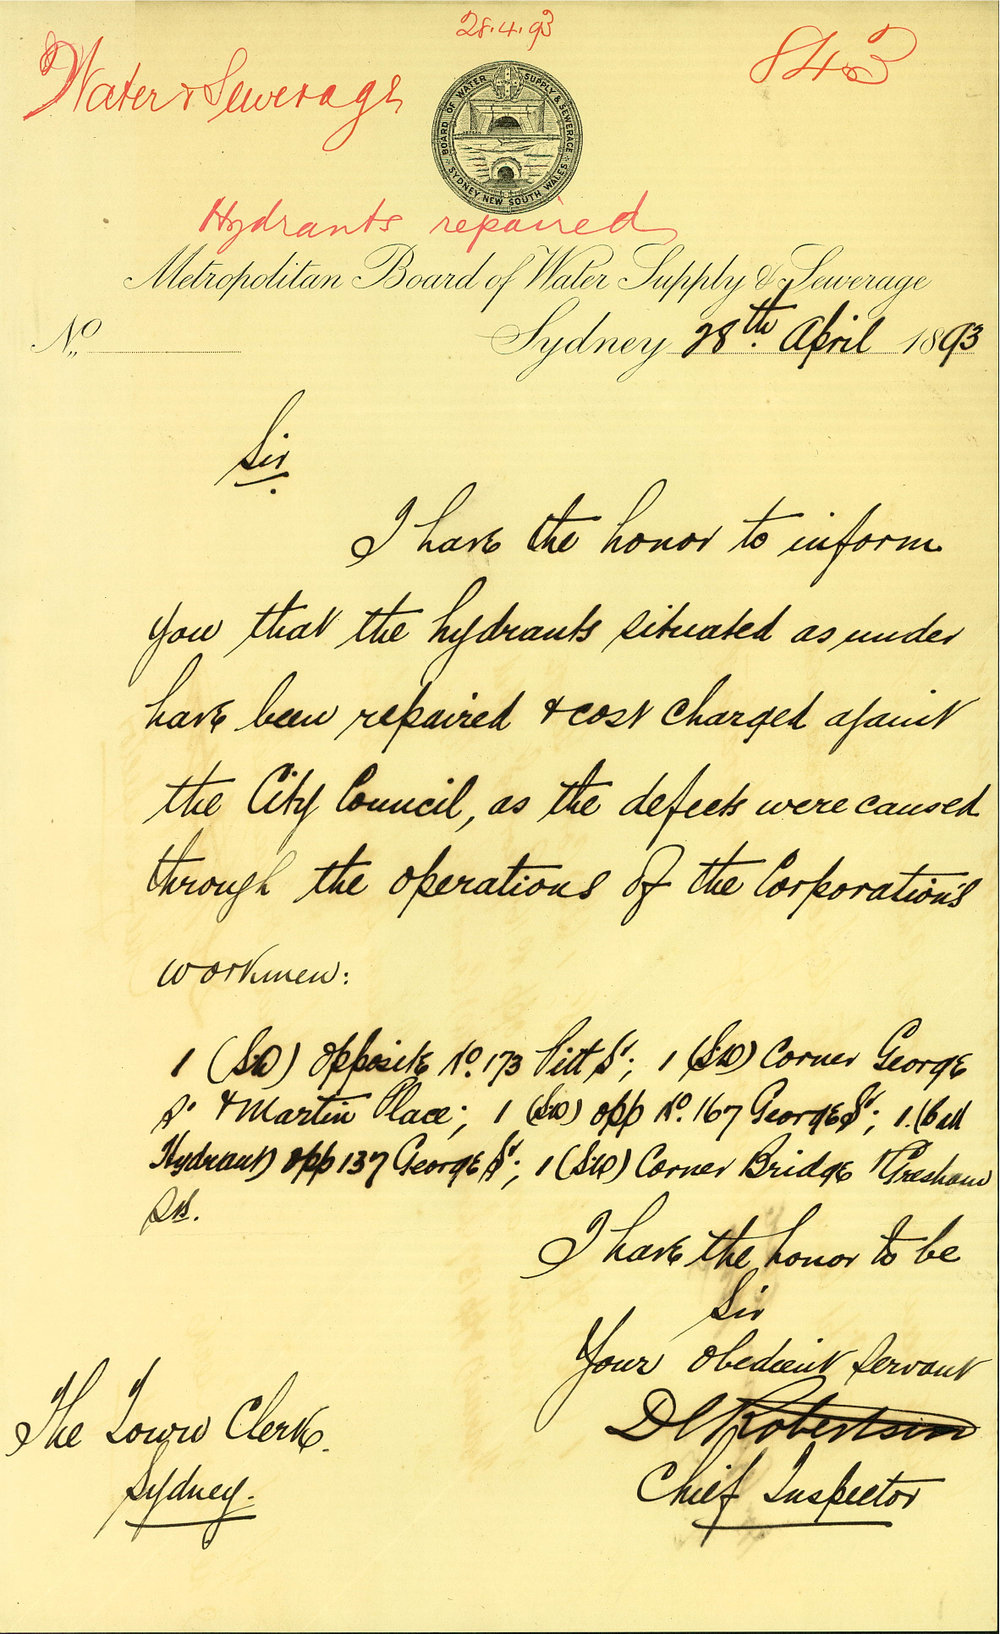 28.4.93
Water & Sewerage
843
BOARD OF WATER SUPPLY & SEWERAGE
SYDNEY NEW SOUTH WALES
Hydrants repaired
Metropolitan Board of Water Supply & Sewerage
No
Sydney 28th April 1893
Sir
I have the honor to inform
you that the hydrants situated as under
have been repaired & cost charged against
the City Council, as the defects were caused
through the operations of the Corporation's
workmen:
1 (S.D) opposite No. 173 Pitt St; 1 (S.D) Corner George
St & Martin Place; 1 (S.D) opp No. 167 George St; 1 (Ball
Hydrant) opp 137 George St; 1 (S.D) Corner Bridge & Gresham
Sts.
I have the honor to be
Sir
Your obedient servant
Robertson
Chief Inspector
The Town Clerk.
Sydney.